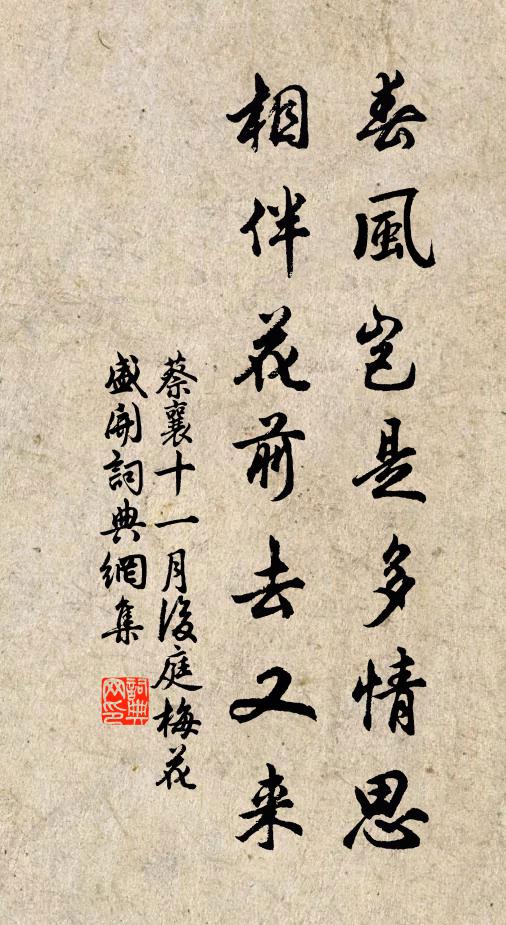 春風岂是多情思
相伴花前去又来
蔡襄十一月後庭梅花
盛開詞典網集
詞典
网印